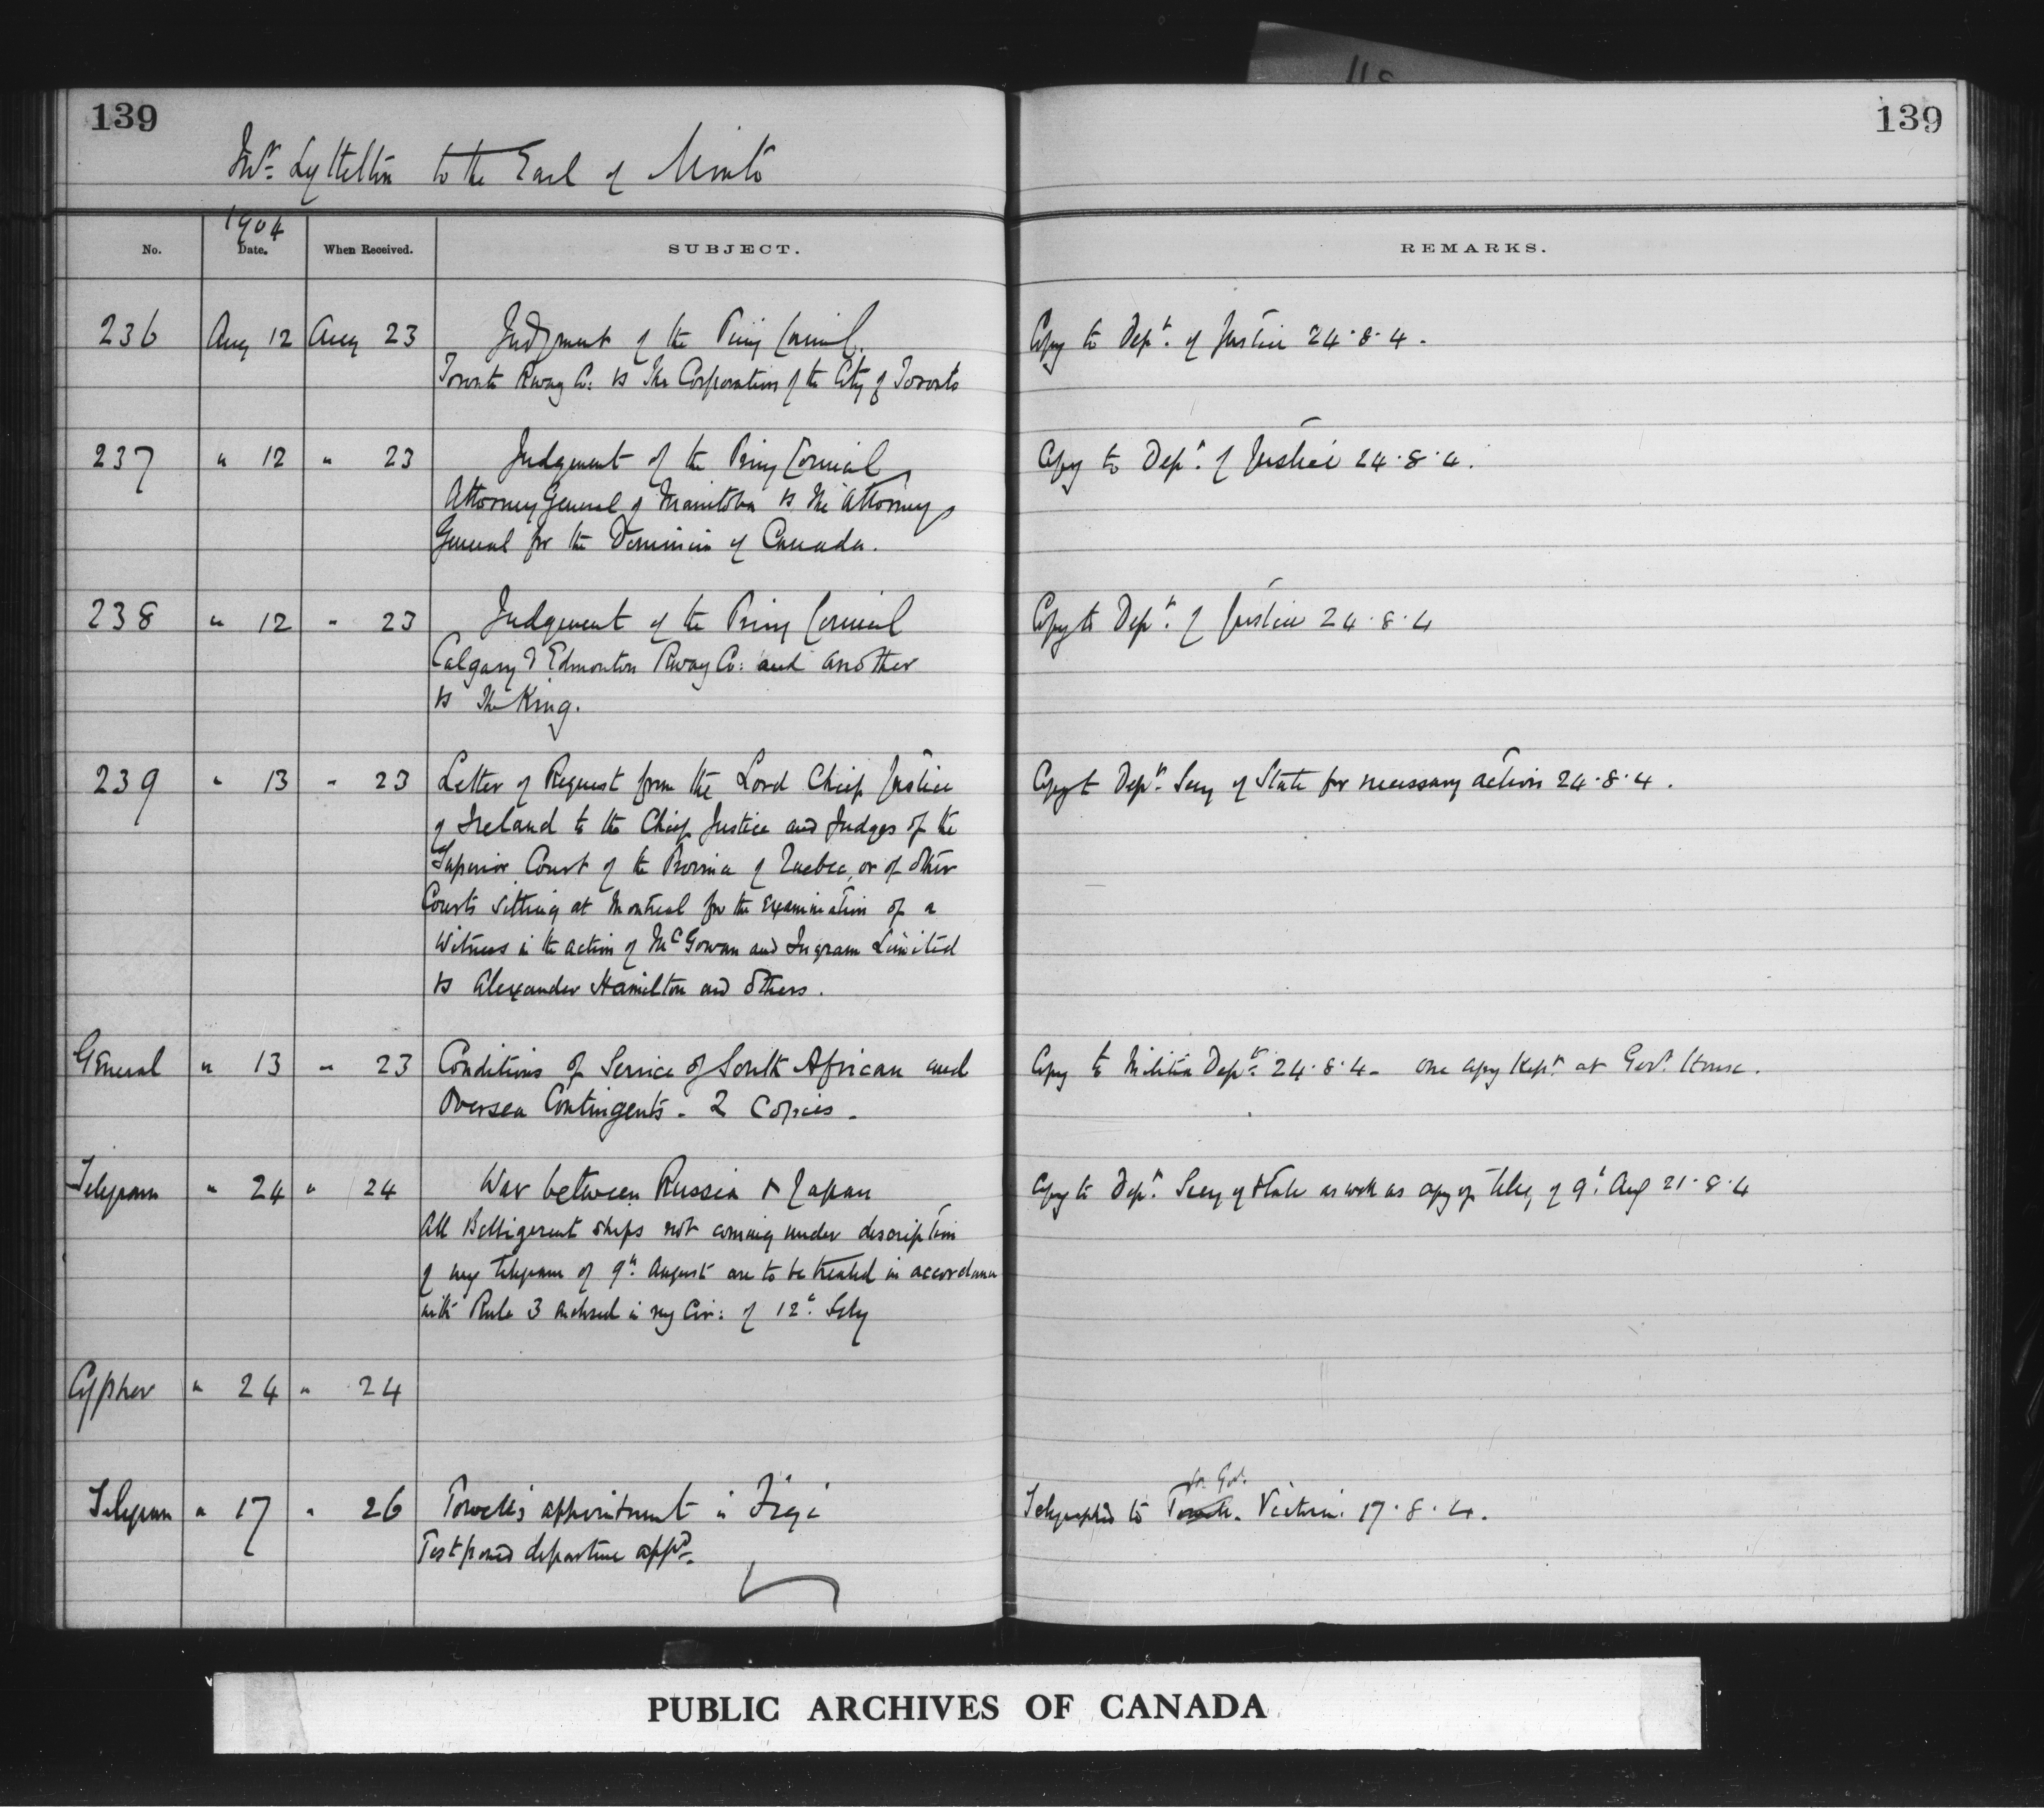 139
139
Mr. Lyttelton to the Earl of Minto
1904
No. Date. When Received. SUBJECT. REMARKS.
236 Aug 12 Aug 23 Judgment of the Privy Council. Copy to Dept. of Justice 24.8.4.
Toronto Rway Co: vs The Corporation of the City of Toronto
237 " 12 " 23 Judgement of the Privy Council Copy to Dept. of Justice 24.8.4.
Attorney General of Manitoba vs The Attorney
General for the Dominion of Canada.
238 " 12 " 23 Judgement of the Privy Council Copy to Dept. of Justice 24.8.4
Calgary & Edmonton Rway Co: and another
vs The King.
239 " 13 " 23 Letter of Request from the Lord Chief Justice Copy to Dept. Secy of State for necessary action 24.8.4.
of Ireland to the Chief Justice and Judges of the
Superior Court of the Province of Quebec, or of other
Courts sitting at Montreal for the examination of a
Witness in the action of McGowan and Ingram Limited
vs Alexander Hamilton and others.
General " 13 " 23 Conditions of Service of South African and Copy to Militia Dept. 24.8.4 - One copy kept at Govt. House.
Oversea Contingents - 2 Copies.
Telegram " 24 " 24 War between Russia & Japan Copy to Dept. Secy of State as well as copy of teleg of 9th Aug 21.8.4
All Belligerent ships not coming under description
of my telegram of 9th. August are to be treated in accordance
with Rule 3 enclosed in my Cir: of 12th.
Cypher " 24 " 24
Lt. Gov.
Telegram " 17 " 26 Powell's appointment in Fiji Telegraphed to Victoria. 17.8.4.
Postponed departure appd.
PUBLIC ARCHIVES OF CANADA